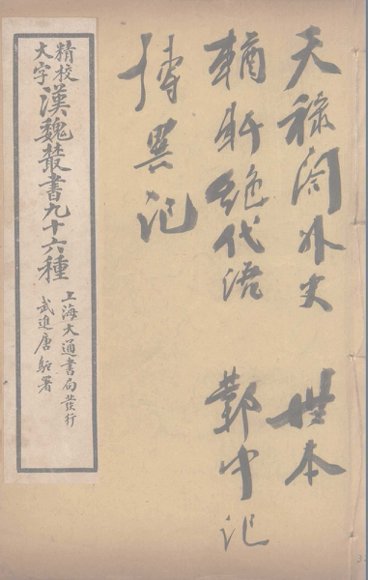 天禄阁外史 世本
輶軒绝代语 鄴中记
博異记
精校
大字
漢魏叢書九十六種
上海大通書局發行
武進唐駝署